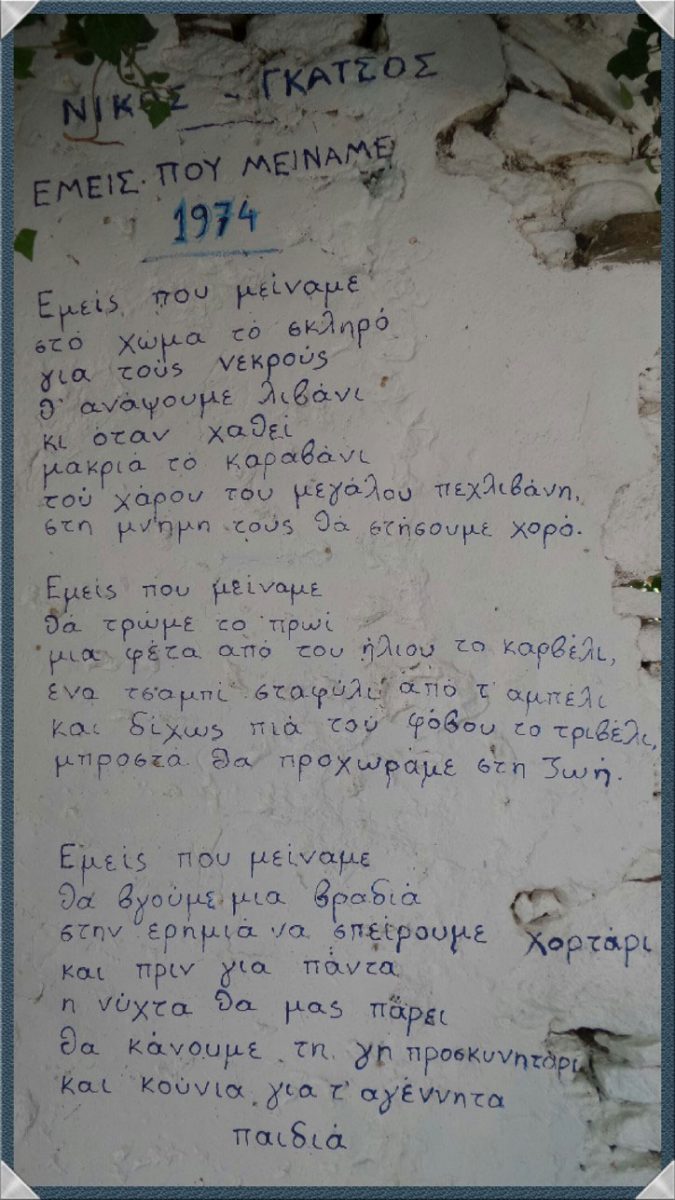 ΝΙΚΟΣ - ΓΚΑΤΣΟΣ
ΕΜΕΙΣ ΠΟΥ ΜΕΙΝΑΜΕ
1974
Εμείς που μείναμε
στό χώμα τό σκληρό
για τούς νεκρούς
θ' ανάψουμε λιβάνι
κι όταν χαθεί
μακριά τό καραβάνι
τού χάρου του μεγάλου πεχλιβάνη,
στη μνήμη τούς θά στήσουμε χορό.
Εμείς που μείναμε
θά τρώμε το πρωί
μια φέτα από του ήλιου το καρβέλι,
ένα τσαμπί σταφύλι από τ' αμπέλι
και δίχως πιά τού φόβου το τριβέλι,
μπροστά θα προχωράμε στη ζωή.
Εμείς που μείναμε
θά βγούμε μια βραδιά
στην ερημιά να σπείρουμε χορτάρι
και πριν για πάντα
η νύχτα θα μας πάρει
θα κάνουμε τη γη προσκυνητάρι
και κούνια για τ' αγέννητα
παιδιά